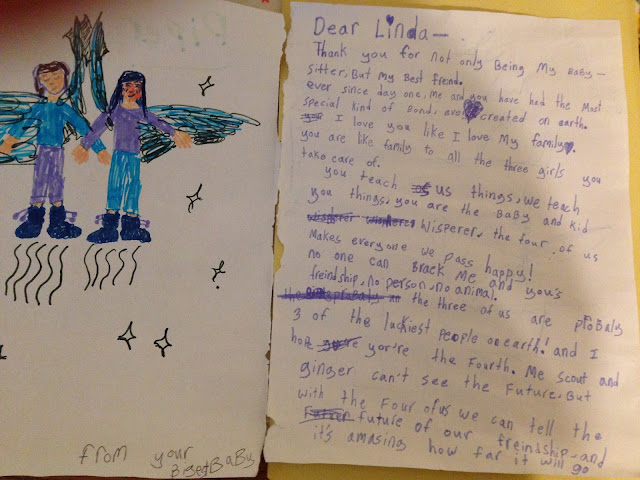 from your
BigestBaBy
Dear Linda—
Thank you for not only Being My BaBy-
sitter, But my Best friend.
ever since day one, Me and you have had the Most
special kind of Bond, ever created on earth.
I love you like I love My family.
you are like family to all the three girls you
take care of.
you teach us things, we teach
you things, you are the BaBy and kid
Wisperer, the four of us
Makes everyone we pass happy!
no one can Brack Me and you's
freindship, no person, no animal.
the three of us are proBaly
3 of the luckiest people on earth! and I
hope you're the Fourth. Me scout and
ginger can't see the Future. But
with the Four of us we can tell the
future of our freindship, and
it's amasing how far it will go